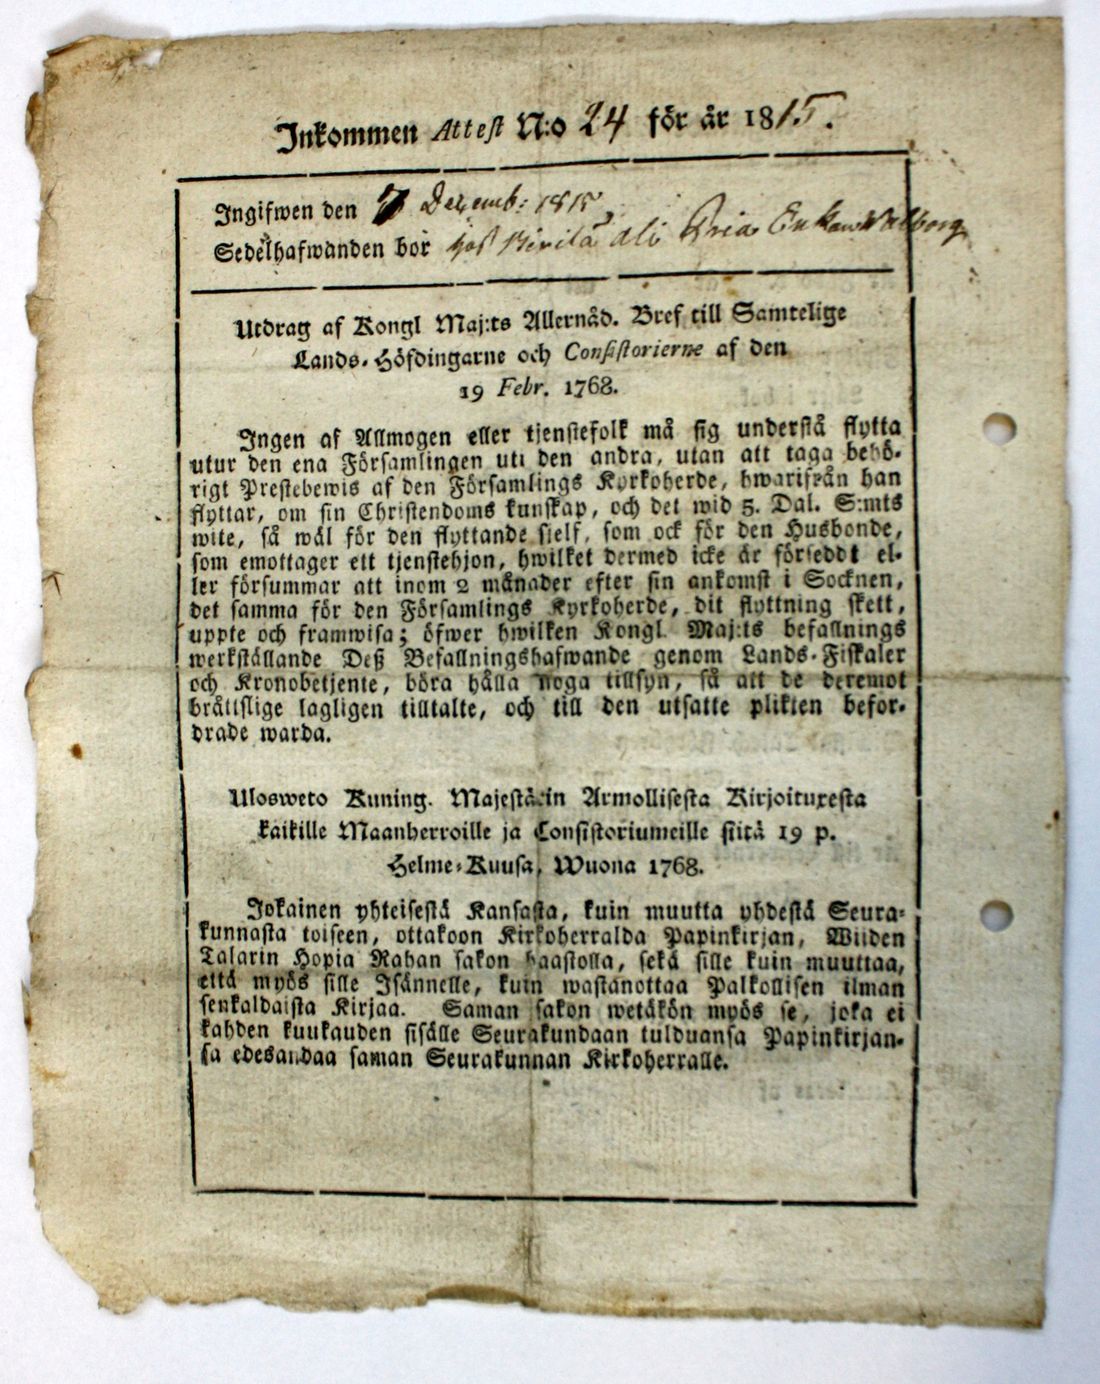 Inkommen Attest N:o 24 för år 1815.
Ingifwen den 7 Decemb: 1815
Sedelhafwanden bor hos Pirilä Enkan Walborg
Utdrag af Kongl Maj:ts Allernåd. Bref till Samtelige
Lands-Höfdingarne och Consistorierne af den
19 Febr. 1768.
Ingen af Allmogen eller tjenstefolk må sig understå flytta
utur den ena Församlingen uti den andra, utan att taga behö-
rigt Prestebewis af den Församlings Kyrkoherde, hwarifrån han
flyttar, om sin Christendoms kunskap, och det wid 5. Dal. S:mts
wite, så wäl för den flyttande sielf, som ock för den Husbonde,
som emottager ett tjenstehjon, hwilket dermed icke är förseddt el-
ler försummar att inom 2 månader efter sin ankomst i Socknen,
det samma för den Församlings Kyrkoherde, dit flyttning skett,
uppte och framwisa; öfwer hwilken Kongl. Maj:ts befallnings
werkställande Deß Befallningshafwande genom Lands-Fiskaler
och Kronobetjente, böra hålla noga tillsyn, så att de deremot
bråttslige lagligen tilltalte, och till den utsatte plikten befor-
drade warda.
Ulosweto Kuning. Majestä:in Armollisesta Kirjoituxesta
kaikille Maanherroille ja Consistoriumeille siitä 19 p.
Helme-Kuusa, Wuona 1768.
Jokainen yhteisestä Kansasta, kuin muutta yhdestä Seura-
kunnasta toiseen, ottakoon Kirkoherralda Papinkirjan, Wiiden
Talarin Hopia Rahan sakon haastolla, sekä sille kuin muuttaa,
että myös sille Isännelle, kuin wastanottaa Palkollisen ilman
senkaldaista Kirjaa. Saman sakon wetäkön myös se, joka ei
kahden kuukauden sisälle Seurakundaan tulduansa Papinkirjan-
sa edesandaa saman Seurakunnan Kirkoherralle.